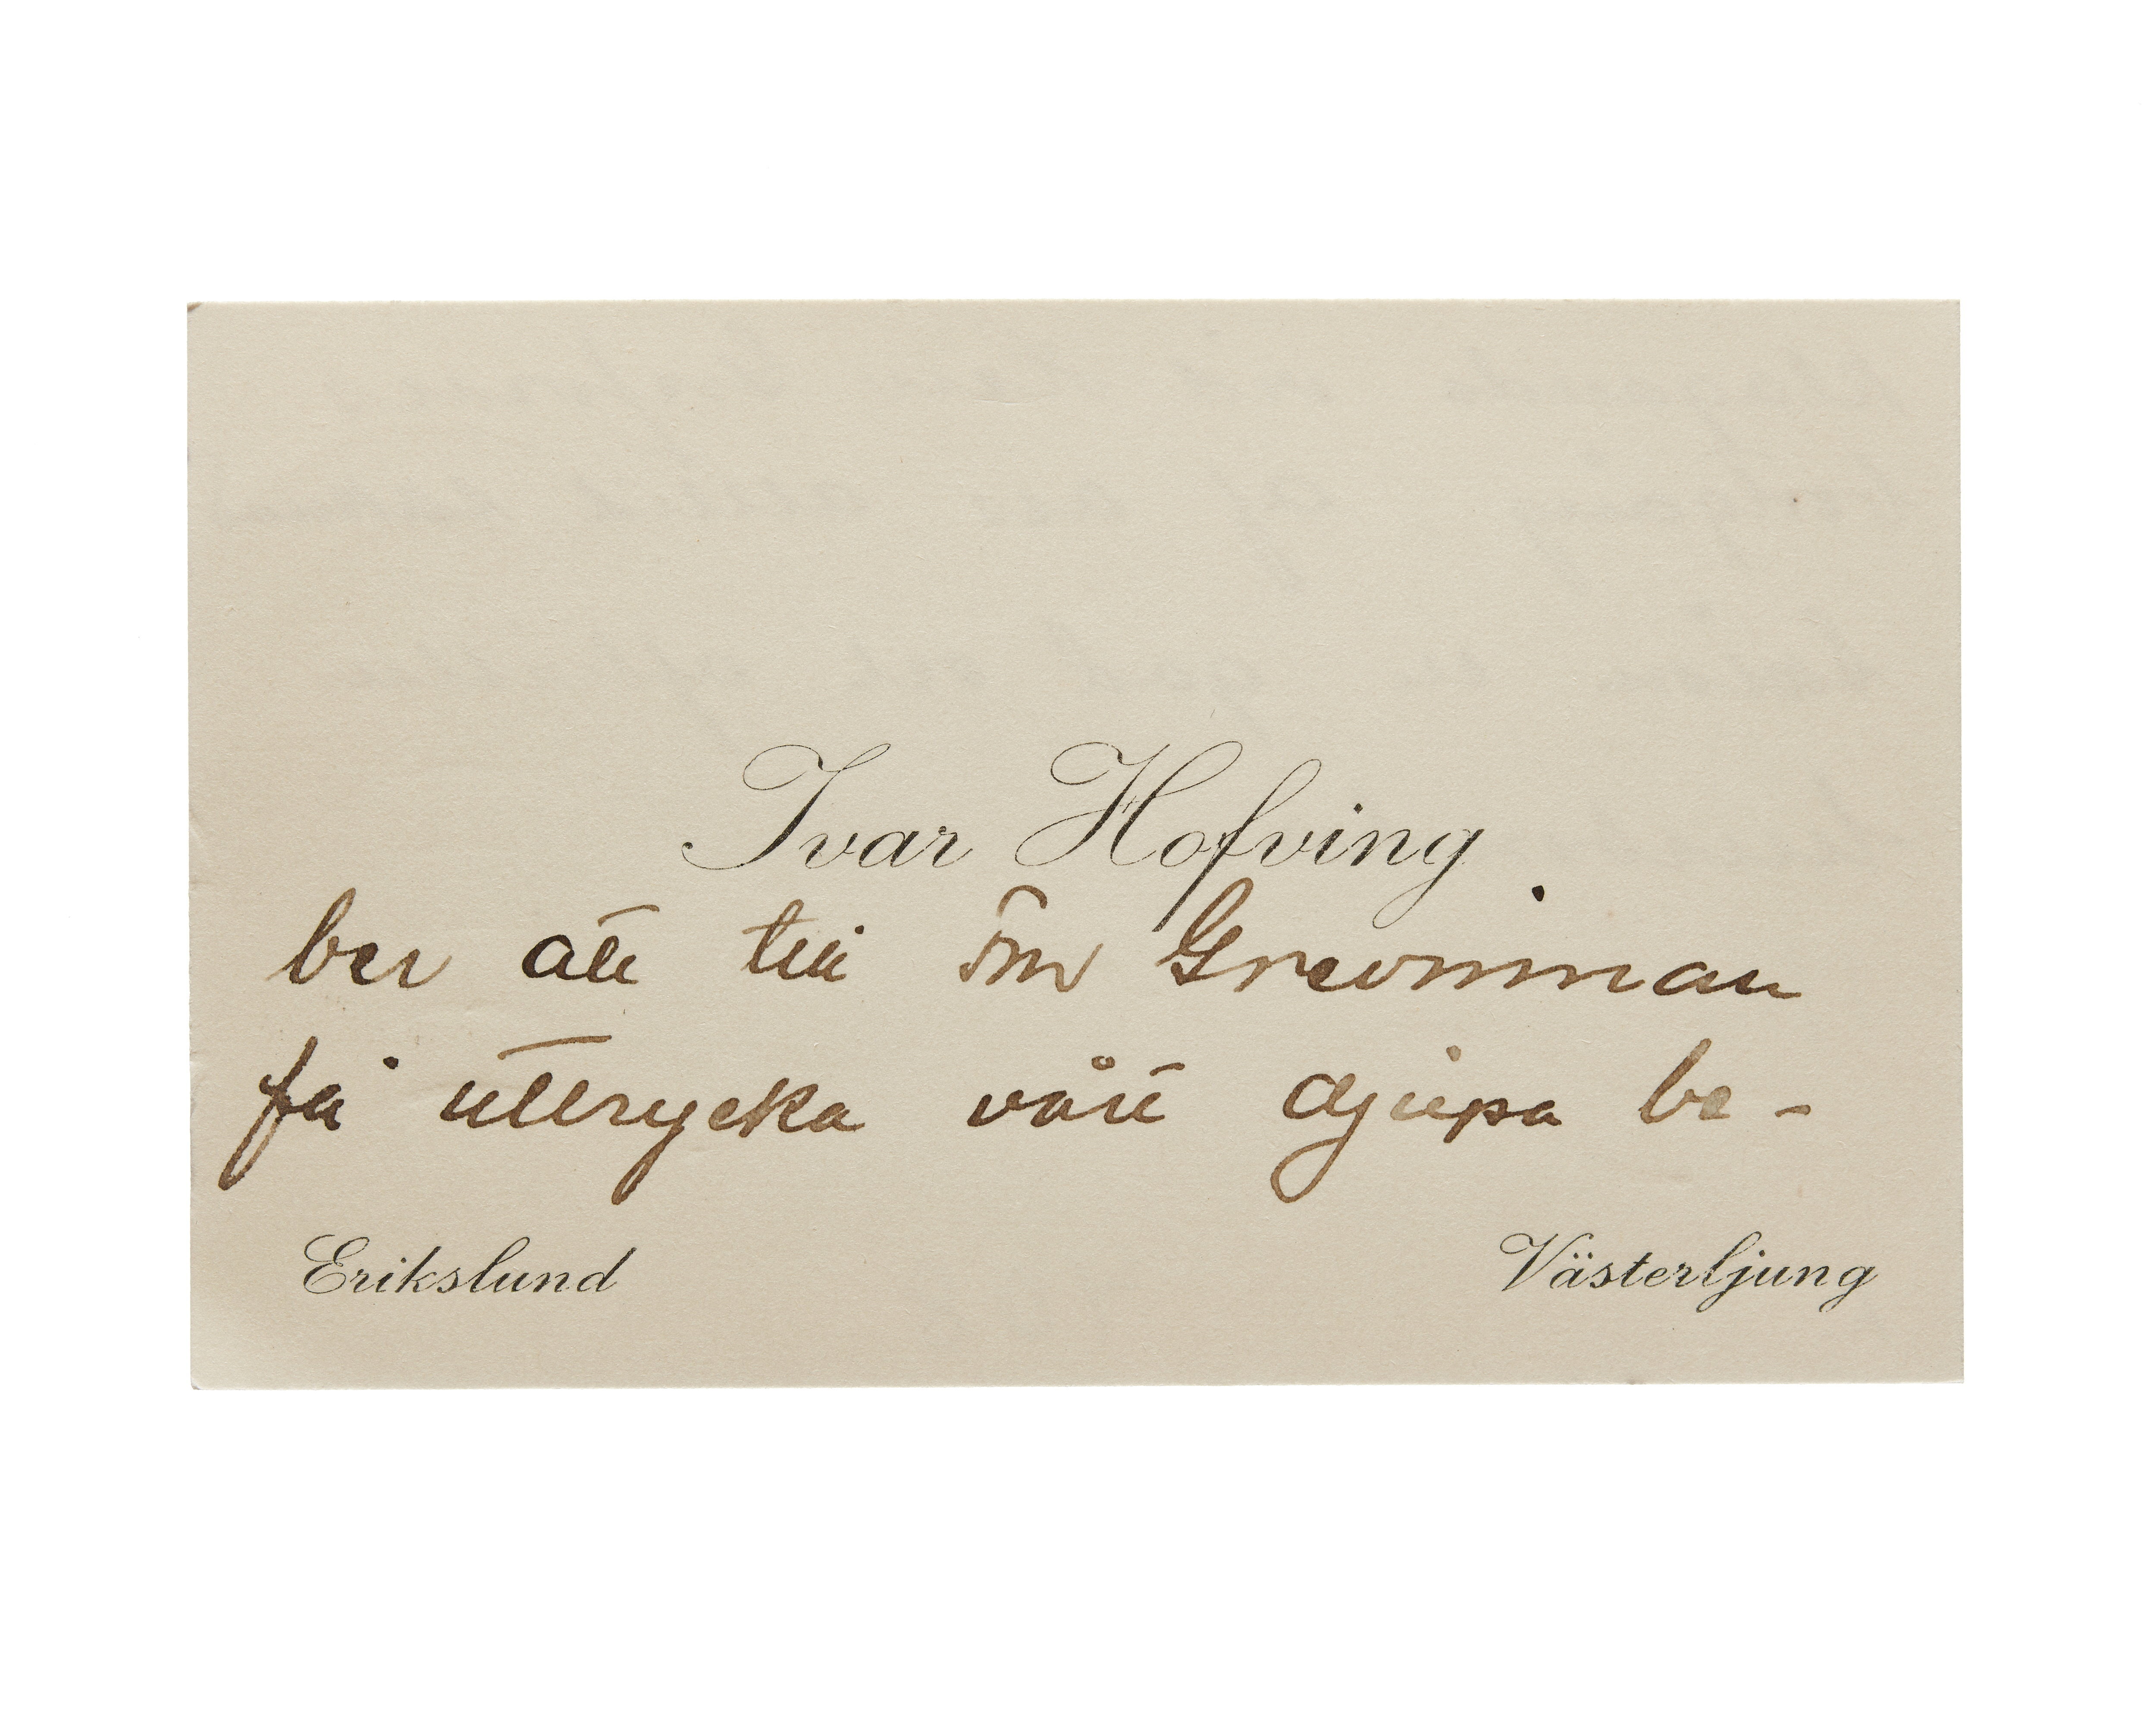 Ivar Hofving
ber att till Grevinnan
få uttrycka vårt djupa be-
Erikslund Västerljung